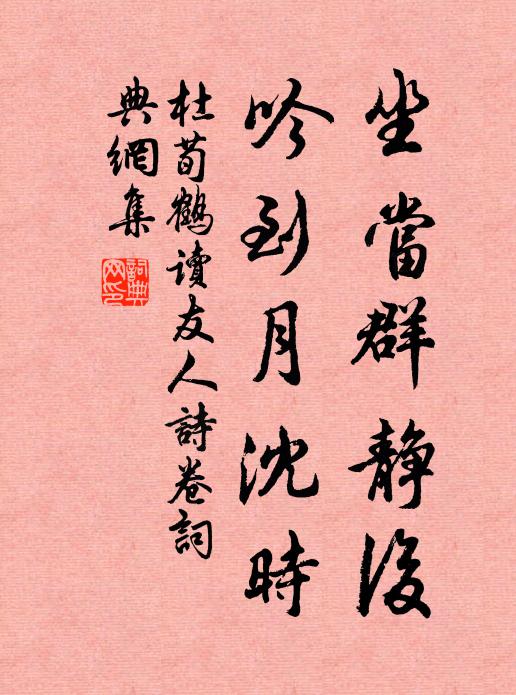 坐當群靜後
吟到月沈時
杜荀鶴讀友人詩卷詞
典網集
詞典網印